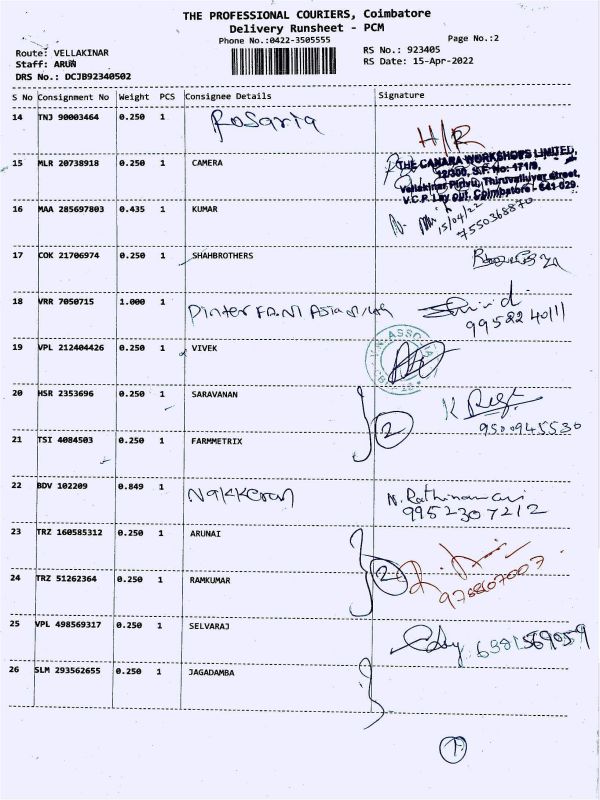 THE PROFESSIONAL COURIERS, Coimbatore
Delivery Runsheet - PCM
Phone No.:0422-3505555
Page No.:2
Route: VELLAKINAR
RS No.: 923405
Staff: ARUN
RS Date: 15-Apr-2022
DRS No.: DCJB92340502
S No Consignment No Weight PCS Consignee Details Signature
14 TNJ 90003464 0.250 1 Rosaria
H/R
15 MLR 20738918 0.250 1 CAMERA
THE CANARA WORKSHOPS LIMITED,
12/300, S.F. No: 171/9,
Vellakinar Pirivu, Thiruvalluvar street,
V.C.P. Lay out, Coimbatore - 641 029.
16 MAA 285697803 0.435 1 KUMAR
15/04/22
7550368870
17 COK 21706974 0.250 1 SHAHBROTHERS
18 VRR 7050715 1.000 1
9958224011
19 VPL 212404426 0.250 1 VIVEK
20 HSR 2353696 0.250 1 SARAVANAN
2
9500945530
21 TSI 4084503 0.250 1 FARMMETRIX
22 BDV 102209 0.849 1 Nakkeran
9952307212
23 TRZ 160585312 0.250 1 ARUNAI
2
24 TRZ 51262364 0.250 1 RAMKUMAR
25 VPL 498569317 0.250 1 SELVARAJ
26 SLM 293562655 0.250 1 JAGADAMBA